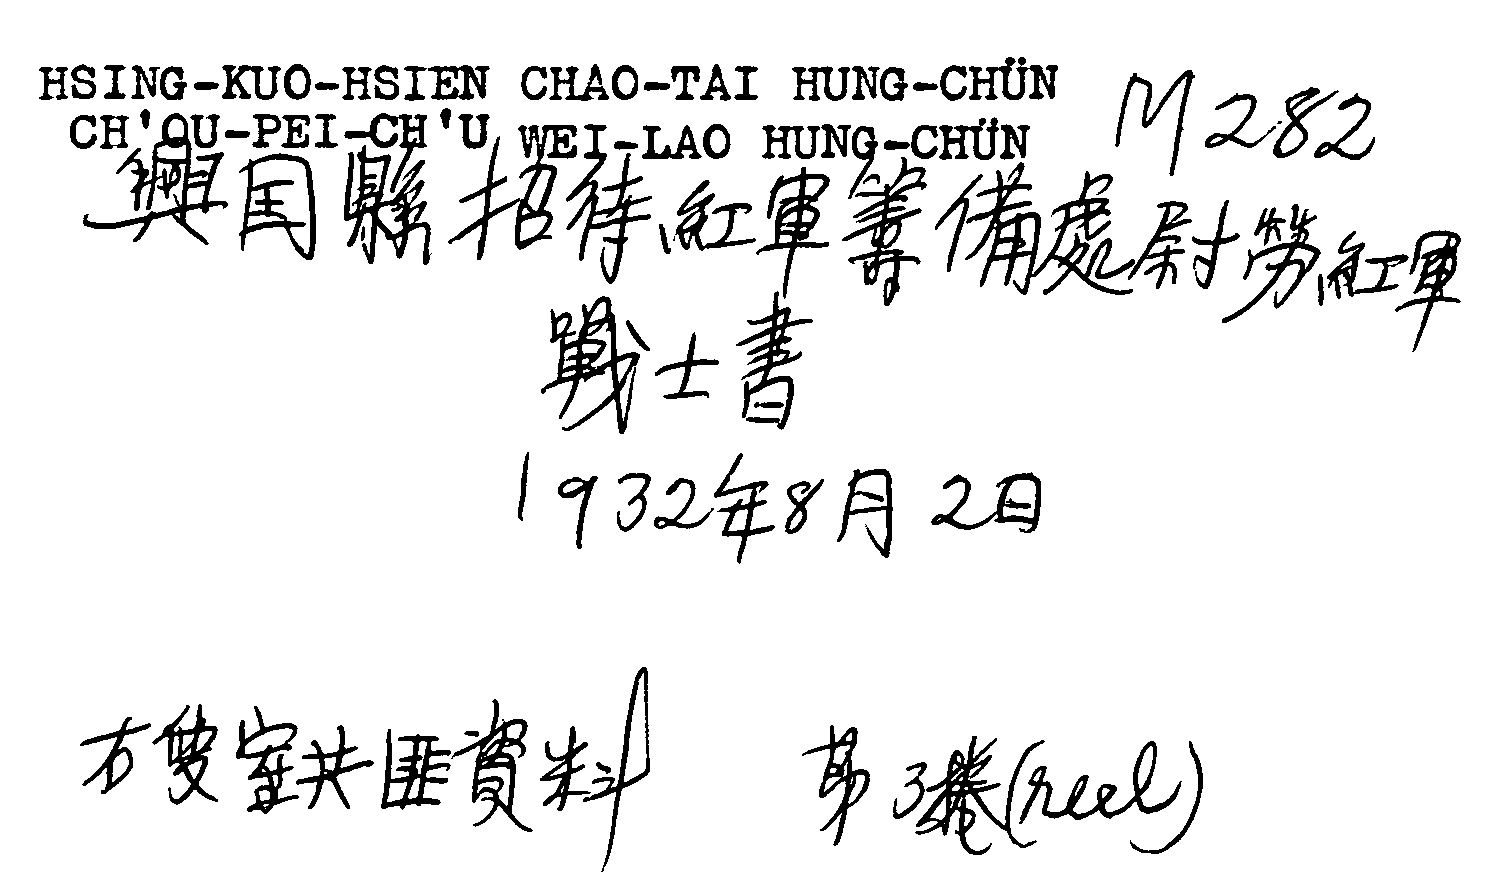 HSING-KUO-HSIEN CHAO-TAI HUNG-CHÜN M282
CH'OU-PEI-CH'U WEI-LAO HUNG-CHÜN
興国縣招待紅軍籌備處尉勞紅軍
戰士書
1932年8月2日
石叟室共匪資料 第3捲(reel)